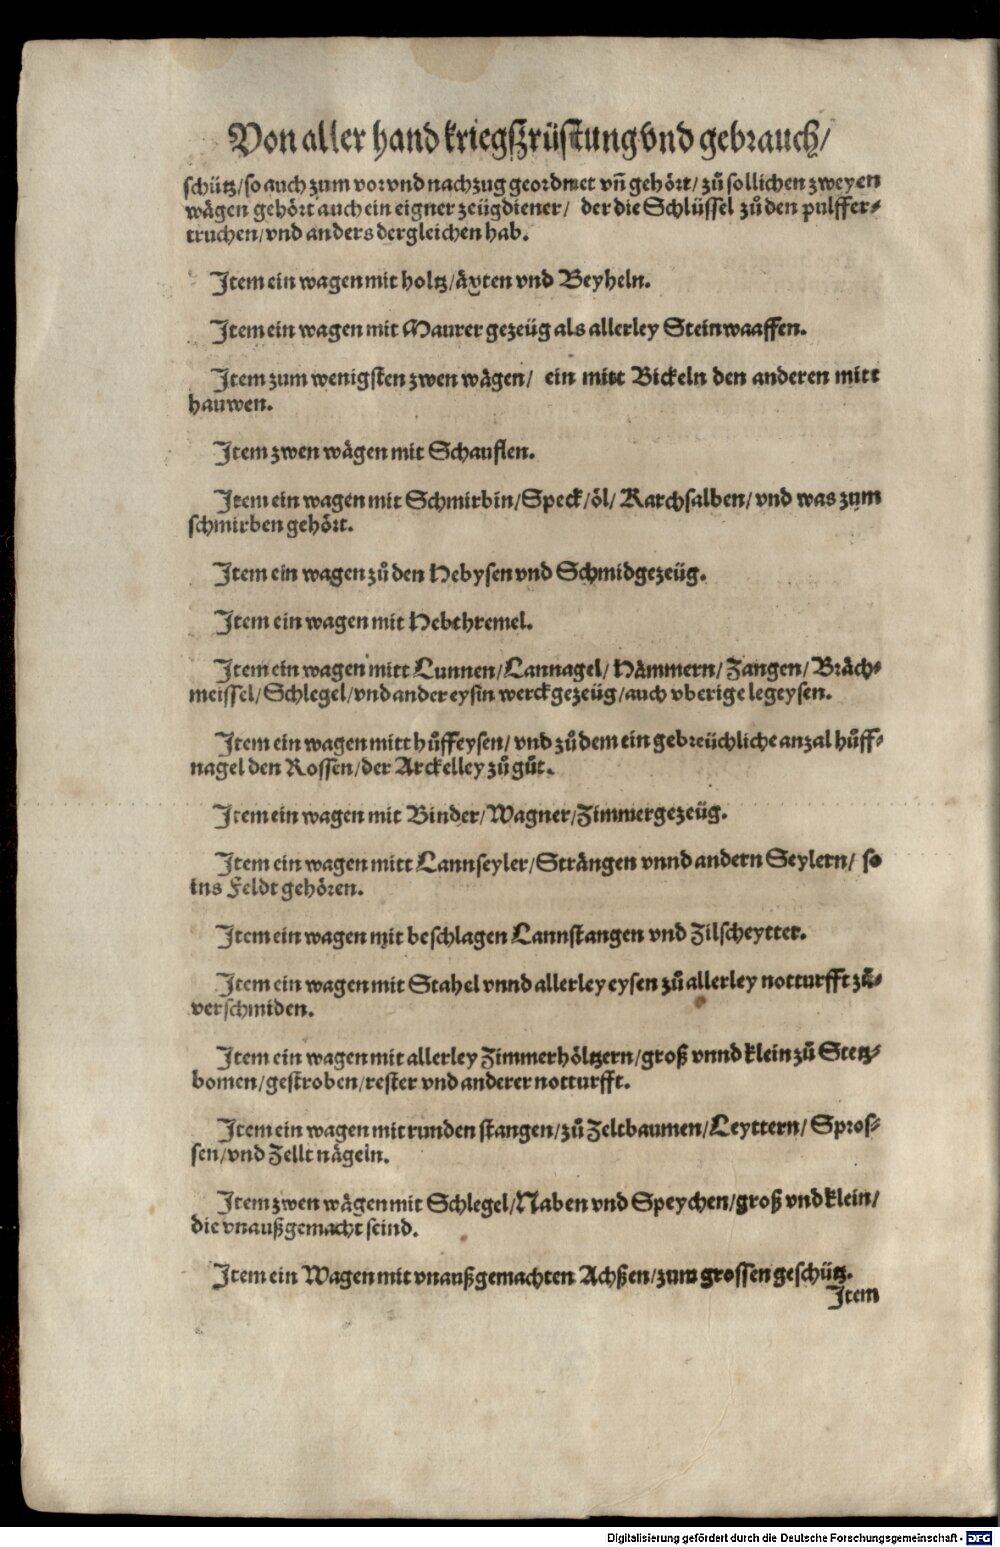 Von aller hand kriegſzrüſtung vnd gebrauch/
ſchütz/ſo auch zum vor vnd nachzug geordnet vñ gehört/ zů ſollichen zweyen
wägen gehört auch ein eigner zeügdiener/ der die Schlüſſel zů den pulffer⸗
truchen/vnd anders dergleichen hab.
Item ein wagen mit holtz/äxten vnd Beyheln.
Item ein wagen mit Maurer gezeüg als allerley Steinwaaffen.
Item zum wenigſten zwen wägen/ ein mitt Bickeln den anderen mitt
hauwen.
Item zwen wägen mit Schauflen.
Item ein wagen mit Schmirbin/Speck/öl/ Karchſalben/ vnd was zum
ſchmirben gehört.
Item ein wagen zů den Hebyſen vnd Schmidgezeüg.
Item ein wagen mit Hebthremel.
Item ein wagen mitt Lunnen/Lannagel/ Hämmern/ Zangen/ Bräch⸗
meiſſel/Schlegel/vnd ander eyſin werckgezeüg/auch vberige legeyſen.
Item ein wagen mitt hůffeyſen/ vnd zů dem ein gebreüchliche anzal hůff⸗
nagel den Roſſen/der Arckelley zů gůt.
Item ein wagen mit Binder/Wagner/Zimmergezeüg.
Item ein wagen mitt Lannſeyler/Strängen vnnd andern Seylern/ ſo
ins Feldt gehören.
Item ein wagen mit beſchlagen Lannſtangen vnd Zilſcheytter.
Item ein wagen mit Stahel vnnd allerley eyſen zů allerley notturfft zů⸗
verſchmiden.
Item ein wagen mit allerley Zimmerhöltzern/groß vnnd klein zů Stetz⸗
bomen/geſtroben/reſter vnd anderer notturfft.
Item ein wagen mit runden ſtangen/zů Zeltbaumen/Leyttern/ Sproſ⸗
ſen/vnd Zellt nägeln.
Item zwen wägen mit Schlegel/Naben vnd Speychen/groß vnd klein/
die vnaußgemacht ſeind.
Item ein Wagen mit vnaußgemachten Achßen/zum groſſen geſchütz.
Item
Digitalisierung gefördert durch die Deutsche Forschungsgemeinschaft - DFG